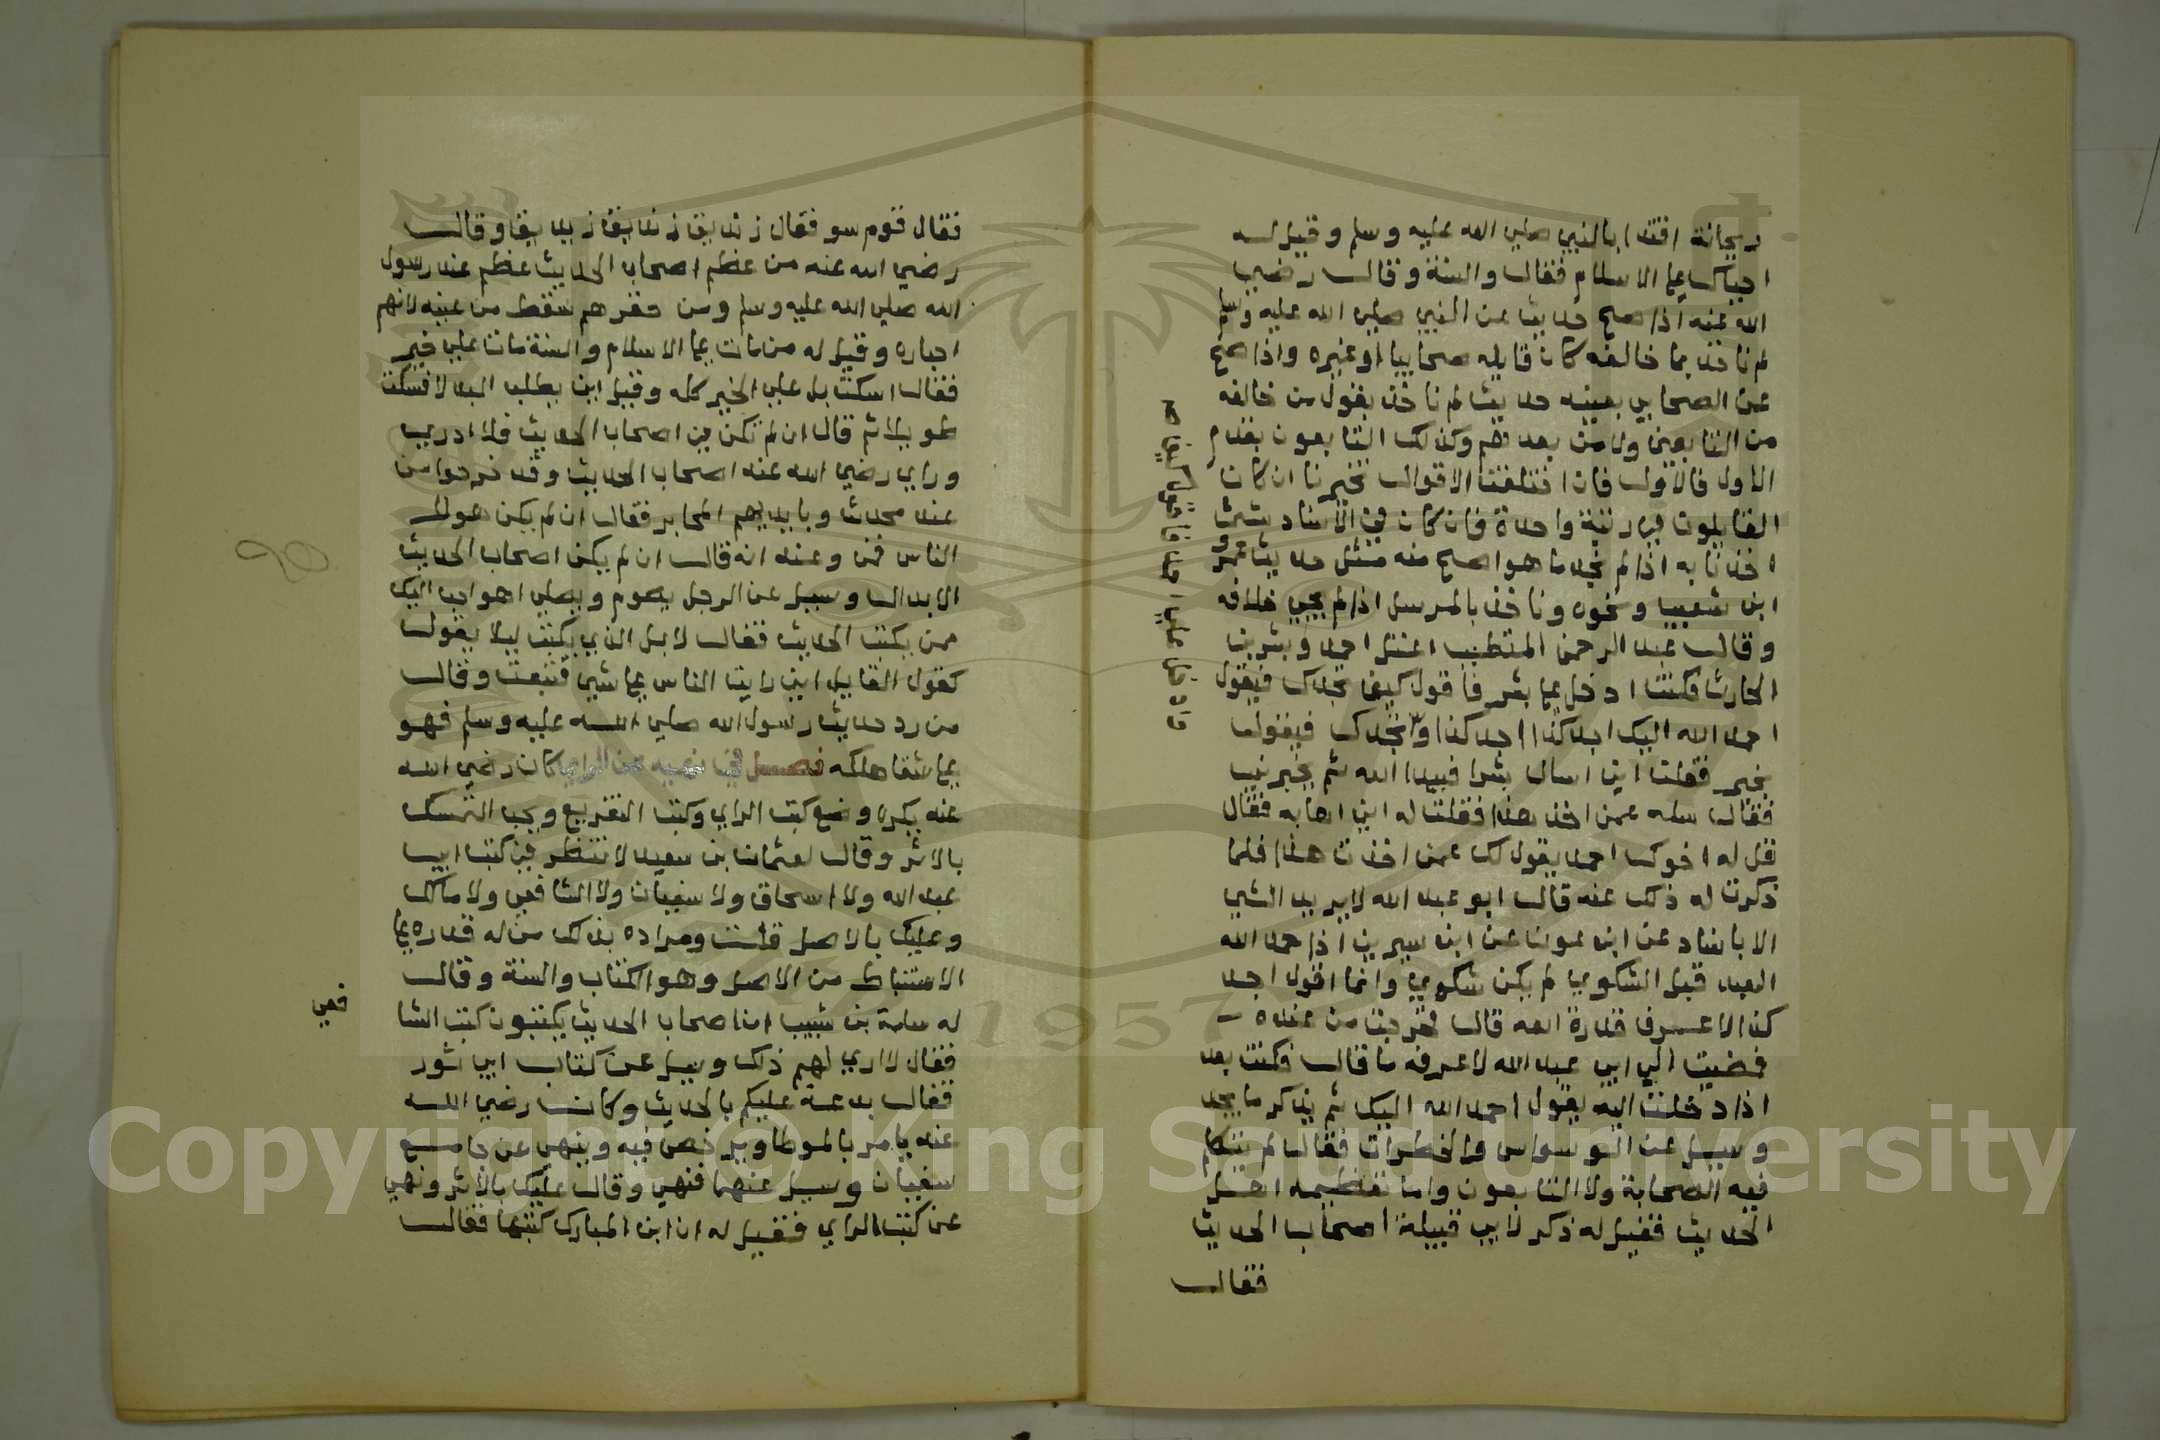 ريحانة اقتدا بالنبي صلي الله عليه وسلم وقيل له
احياك علي الاسلام فقال والسنة وقال رضي
الله عنه اذا صح حديث عن النبي صلي الله عليه وسلم
لم ناخذ بما خالفه كان قايله صحابيا او غيره واذا صح
عن الصحابي بعينه حديث لم ناخذ بقول من خالفه
من التابعين ولا من بعدهم وكذلك التابعون بقدم
الاول فالاول فان اختلفت الاقوال تخيرنا ان كان
القايلون في رتبة واحدة فان كان في الاسناد شي
اخذنا به اذا لم نجد ما هو اصح منه مثل حديث عمرو
ابن شعيب ونحوه وناخذ بالمرسل اذا لم يجي خلافه
وقال عبد الرحمن المتطبب اعتل احمد وبشر بن
الحارث فكنت ادخل علي بشر فاقول كيف تجدك فيقول
احمد الله اليك اجد كذا اجد كذا وتجدك فيقول
بخير فقلت اين اسال بشرا فيبدا الله ثم يخبرني
فقال سله عمن اخذ هذا فقلت له اني اهابه فقال
قل له اخوك احمد يقول لك عمن اخذت هذا فلما
ذكرت له ذلك عنه قال ابو عبد الله لا يريد الشي
الا باسناد عن ابن عون عن ابن سيرين اذا حمد الله
العبد قبل الشكوي لم يكن شكوي وانما اقول اجد
كذا لاعرف قدرة الله قال فخرجت من عنده
فمضيت الي ابي عبد الله لاعرفه ما قال فكنت بعد
اذا دخلت اليه يقول احمد الله اليك ثم يذكر ما يجد
وسيل عن الوسواس والخطرات فقال لم يتكلم
فيه الصحابة ولا التابعون واما تعظيمه اهل
الحديث فقيل له ذكر لابي قبيلة اصحاب الحديث
فقال
فقال قوم سو فقال زنديق زنديق زنديق وقال
رضي الله عنه من عظم اصحاب الحديث عظم عند رسول
الله صلي الله عليه وسلم ومن حقرهم سقط من عينه لانهم
احباره وقيل له من مات علي الاسلام والسنة مات علي خير
فقال اسكت بل علي الخير كله وقيل اين يطلب البدلا فسكت
طويلا ثم قال ان لم تكن في اصحاب الحديث فلا ادري
وراي رضي الله عنه اصحاب الحديث وقد خرجوا من
عند محدث وبايديهم المحابر فقال ان لم يكن هولا
الناس فمن وعنه انه قال ان لم يكن اصحاب الحديث
الابدال وسيل عن الرجل يصوم ويصلي اهو احب اليك
ممن يكتب الحديث فقال لا بل الذي يكتب ليلا يقول
كقول القايل اني رايت الناس علي شي فتبعت وقال
من رد حديث رسول الله صلي الله عليه وسلم فهو
علي شفا هلكه فصل في نهيه عن الراي كان رضي الله
عنه يكره وضع كتب الراي وكتب التفريع ويحب التمسك
بالاثر وقال لعثمان بن سعيد لا تنظر في كتب ابي
عبد الله ولا اسحاق ولا سفيان ولا الشافعي ولا مالك
وعليك بالاصل قلت ومراده بذلك من له قدره علي
الاستنباط من الاصل وهو الكتاب والسنة وقال
له سلمة بن شبيب ان اصحاب الحديث يكتبون كتب الشا
فعي
فقال لا اري لهم ذلك وسيل عن كتاب ابي ثور
فقال بدعة عليكم بالحديث وكان رضي الله
عنه يامر بالموطا ويرخص فيه وينهي عن جامع
سفيان وسيل عنهما فنهي وقال عليك بالاثر ونهي
عن كتب الراي فقيل له ان ابن المبارك كتبها فقال
1957
Copyright © King Saud University